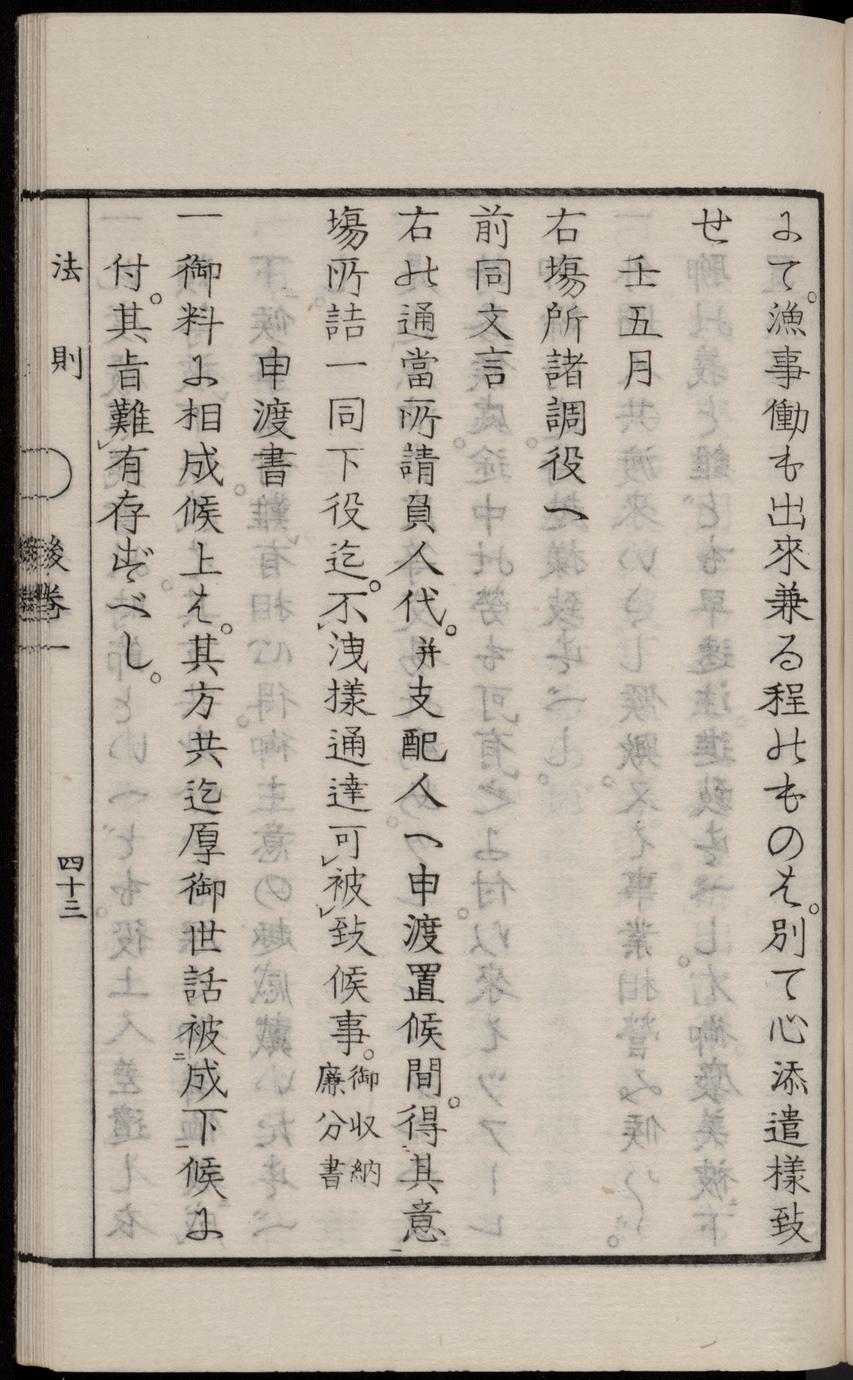 よて。漁事働も出來兼る程のものハ。別て心添遣樣致
せ
壬五月
右塲所諸調役へ
前同文言
右の通當所請負人代。并支配人へ申渡置候間。得其意
塲所詰一同下役迄。不洩樣通達可被致候事。御収納廉分書
申渡書
一御料よ相成候上ハ。其方共迄厚御世話被成下候よ
付。其旨難有存ずべし。
法則
後巻一
四十三